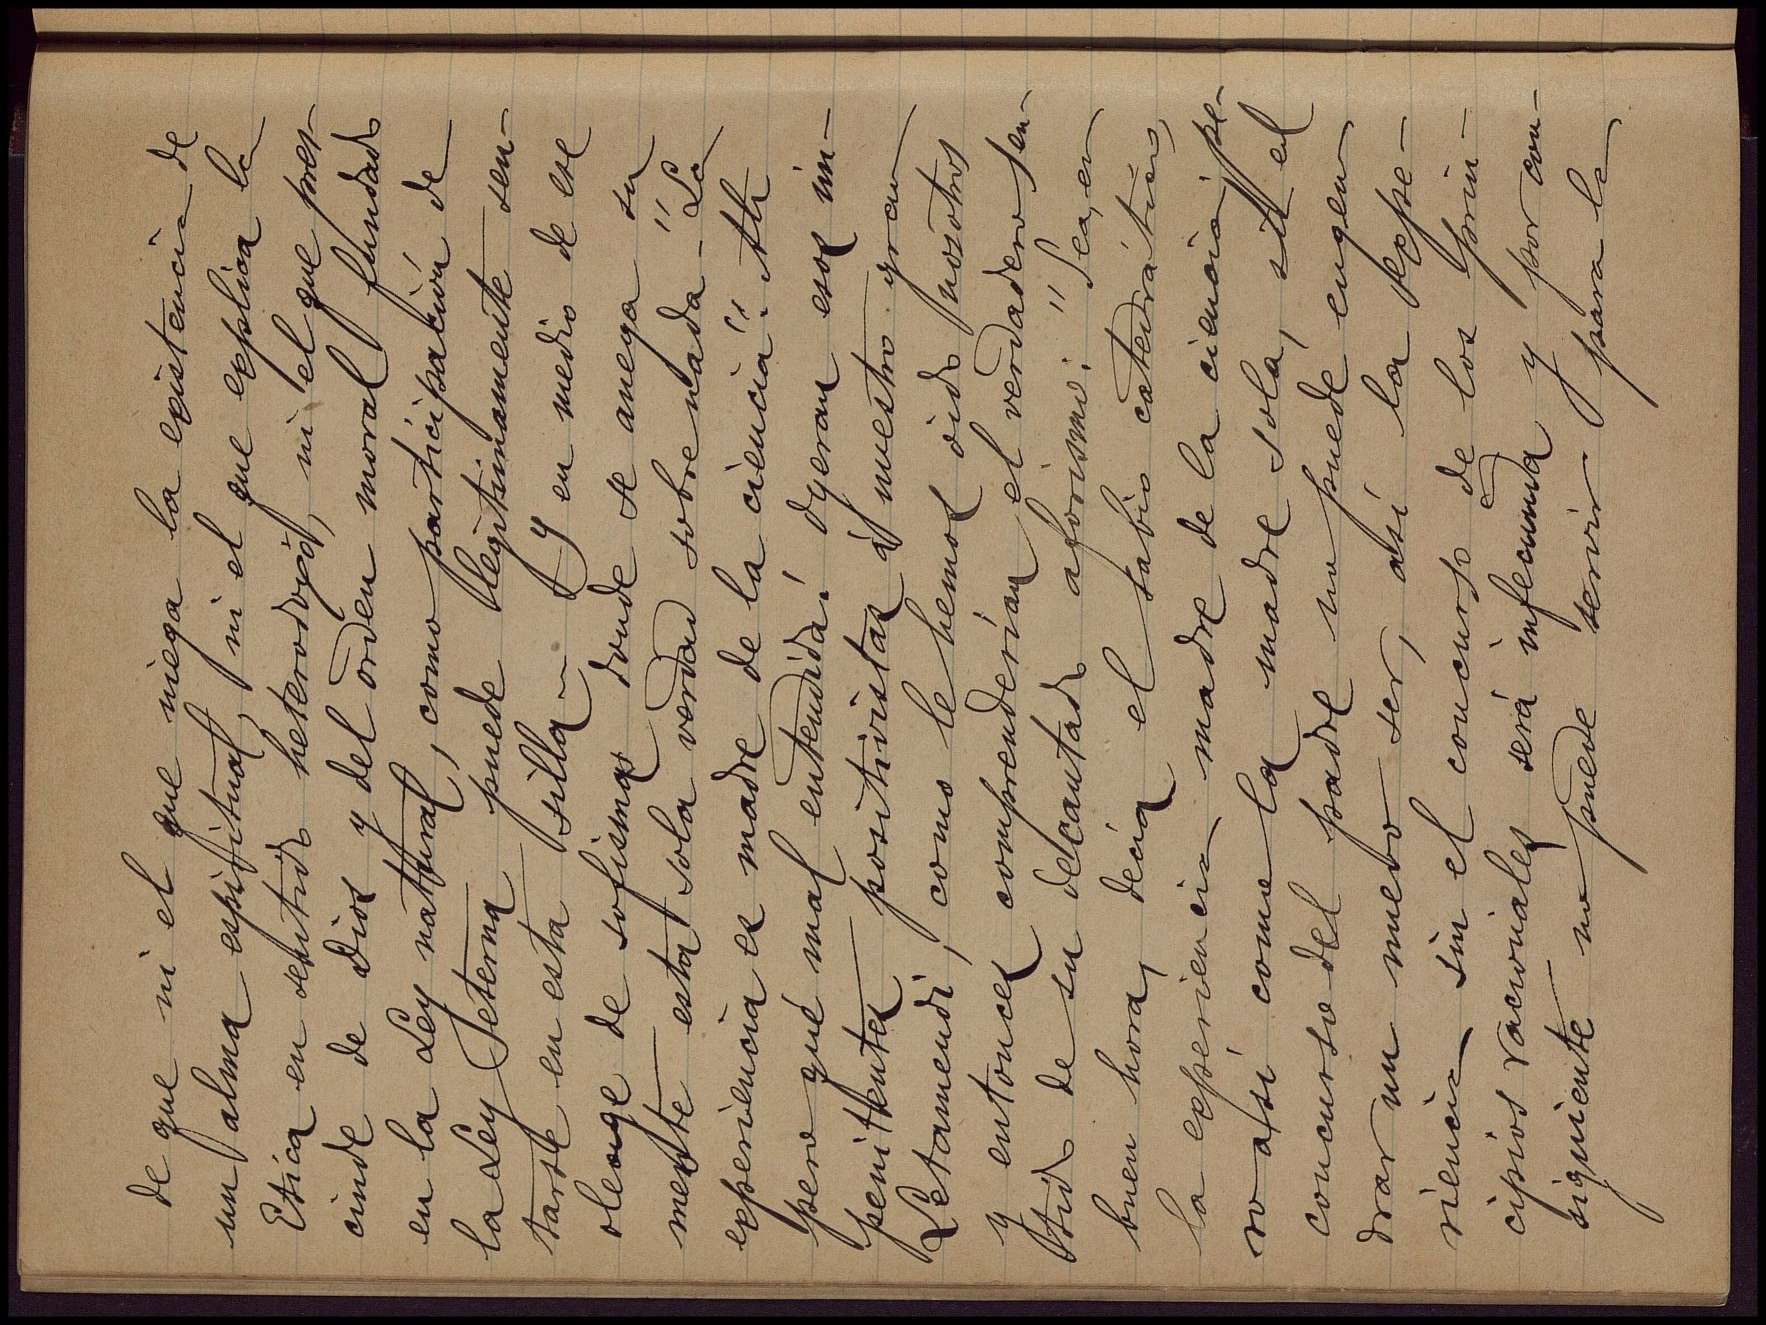 de que ni el que niega la existencia de
un alma espiritual, ni el que explica la
Etica en sentido heterodojo, ni el que pres-
cinde de Dios y del orden moral fundado
en la Ley natural, como participación de
la Ley Eterna puede legitimamente sen-
tarse en esta silla — Y en medio de ese
oleage de sofismas donde se anega su
mente esta sola verdad sobrenada - "La
experiencia es madre de la ciencia". Ah
pero qué mal entendida! Oyeran esos im-
penitentes positivistas á nuestro gran
Letamendi, como le hemos oido nosotros
y entonces comprenderían el verdadero sen-
tido de su decantado aforismo: "Sea, en
buen hora, decía el sabio catedrático,
la experiencia madre de la ciencia; pe-
ro así como la madre sola, sin el
concurso del padre no puede engen
drar un nuevo ser, así la expe-
riencia sin el concurso de los prin-
cipios racionales será infecunda y por con-
siguiente no puede servir para la